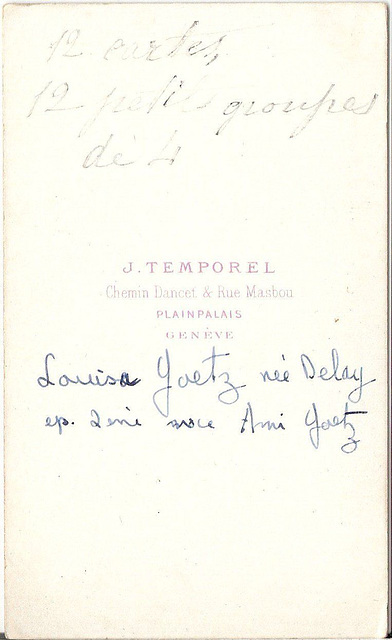 12 cartes,
12 petits groupes
de 4
J. TEMPOREL
Chemin Dancet & Rue Masbou
PLAINPALAIS
GENÈVE
Louisa Goetz née Delay
ep. Ami Goetz